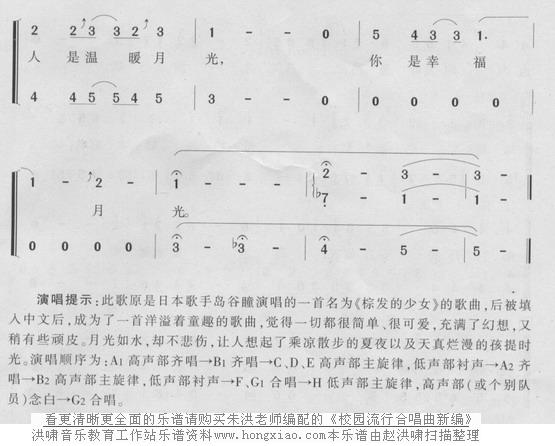 2 2 3 3 2 3 1 - - 0 5 4 3 3 1·
人 是温 暖月 光， 你 是幸 福
4 4 5 5 4 5 3 - - 0 0 0 0 0
1 - 2 - 1 - - - 2 - 3 - 3 -
♭7 - 1 - 1 -
月 光。
0 0 0 0 3 - ♭3 - 4 - 5 - 5 -
演唱提示：此歌原是日本歌手岛谷瞳演唱的一首名为《棕发的少女》的歌曲，后被填
入中文后，成为了一首洋溢着童趣的歌曲，觉得一切都很简单、很可爱，充满了幻想，又
稍有些顽皮。月光如水，却不悲伤，让人想起了乘凉散步的夏夜以及天真烂漫的孩提时
光。演唱顺序为：A1 高声部齐唱→B1 齐唱→C、D、E 高声部主旋律，低声部衬声→A2 齐
唱→B2 高声部主旋律，低声部衬声→F、G1 合唱→H 低声部主旋律，高声部（或个别队
员）念白→G2 合唱。
看更清晰更全面的乐谱请购买朱洪老师编配的《校园流行合唱曲新编》
洪啸音乐教育工作站乐谱资料www.hongxiao.com本乐谱由赵洪啸扫描整理